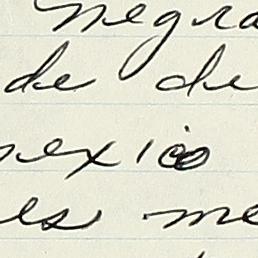 negra
de de
nexico
es me